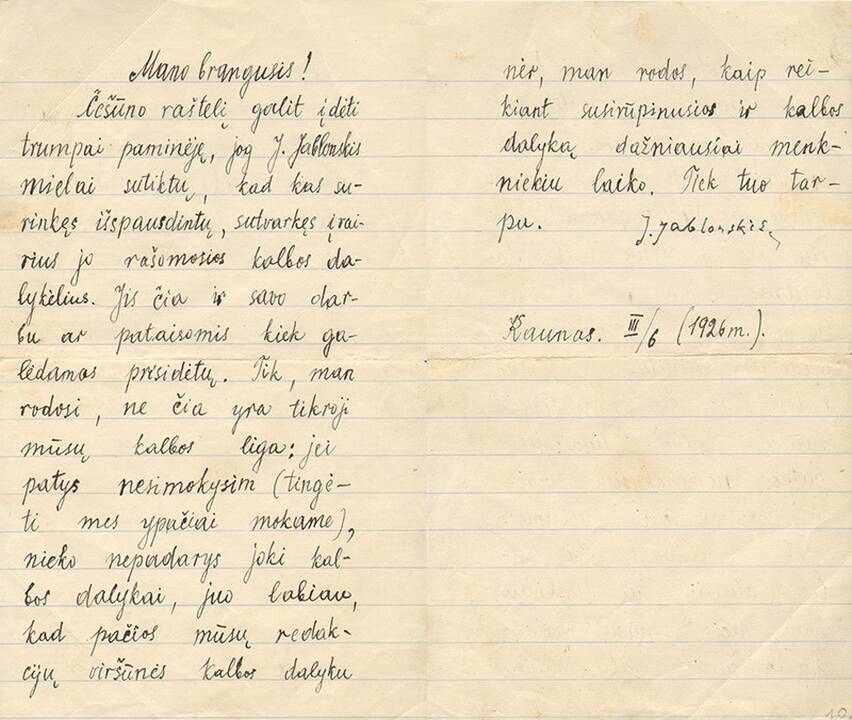 Mano brangusis!
Čėšūno raštelį galit įdėti
trumpai paminėję, jog J. Jablonskis
mielai sutiktų, kad kas su-
rinkęs išspausdintų, sutvarkęs įvai-
rius jo rašomosios kalbos da-
lykėlius. Jis čia ir savo dar-
bu ar pataisomis kiek ga-
lėdamas prisidėtų. Tik, man
rodosi, ne čia yra tikroji
mūsų kalbos liga: jei
patys nesimokysim (tingė-
ti mes ypačiai mokame),
nieko nepadarys joki kal-
bos dalykai, juo labiau,
kad pačios mūsų redak-
cijų viršūnės kalbos dalyku
nėr, man rodos, kaip rei-
kiant susirūpinusios ir kalbos
dalyką dažniausiai menk-
niekiu laiko. Tiek tuo tar-
pu. J. Jablonskis
Kaunas. III/6 (1926 m.).
10